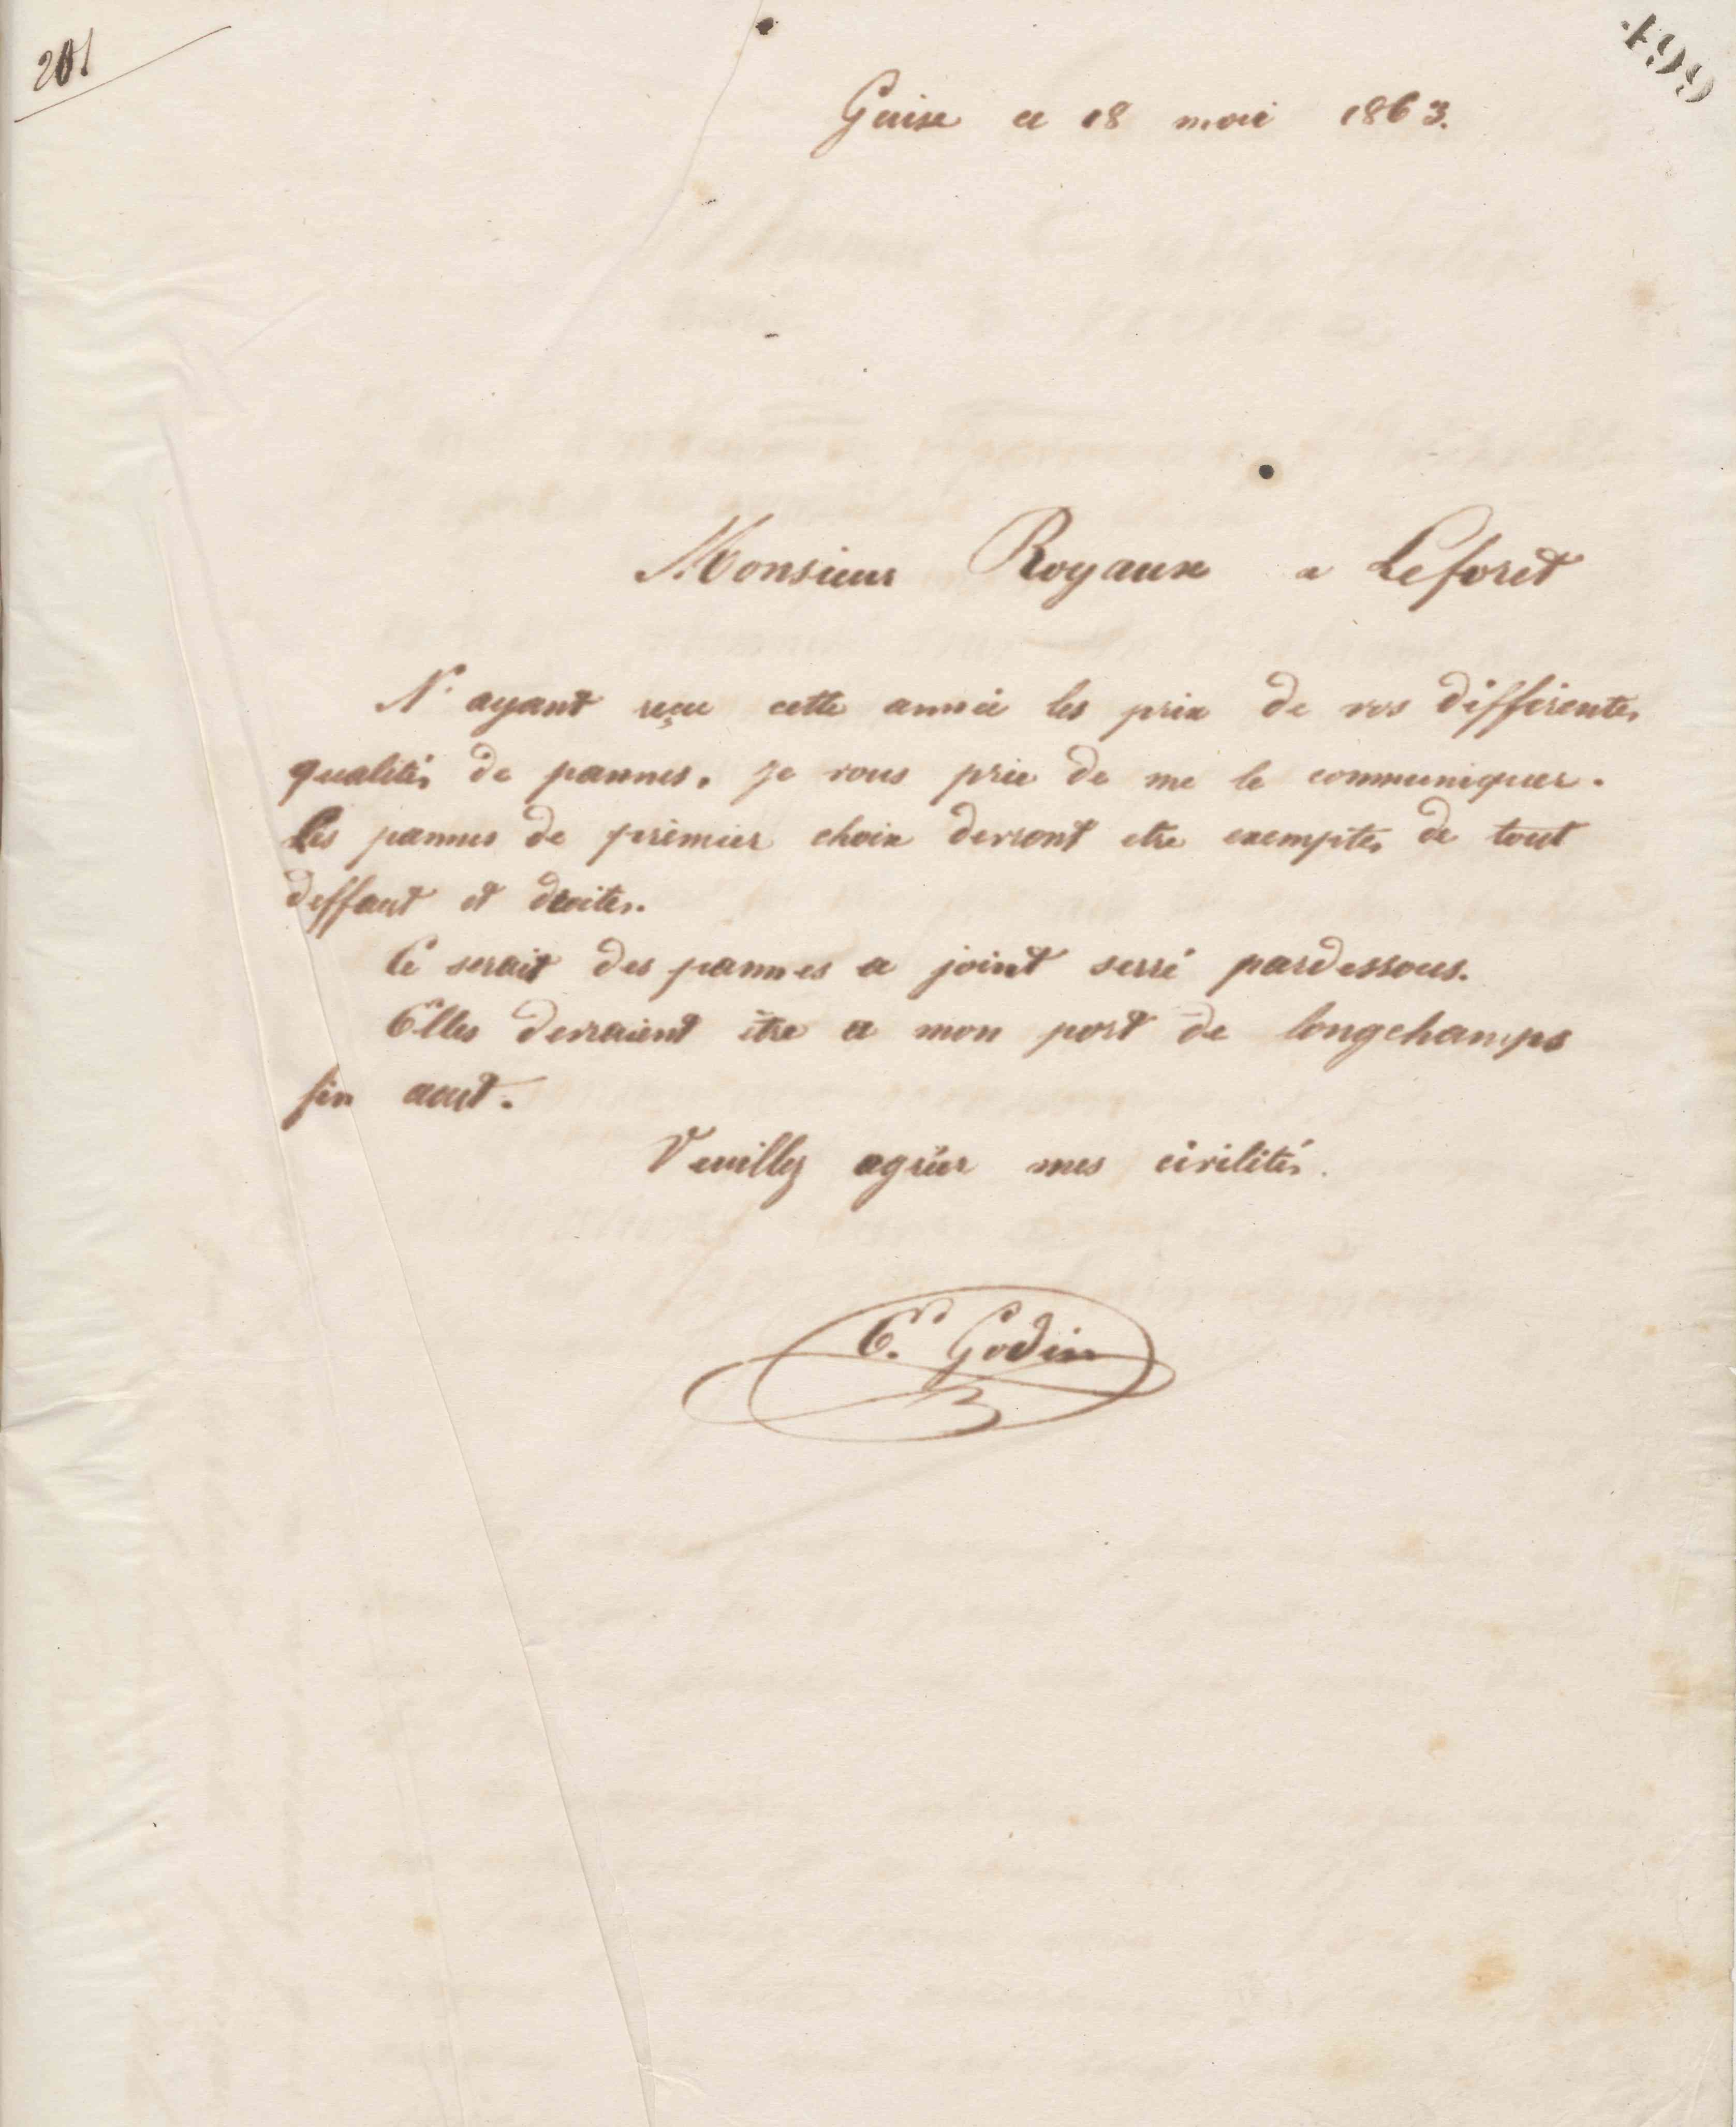 201
499
Guise ce 18 mai 1863.
Monsieur Royaux a Leforest
N'ayant reçu cette année les prix de vos différentes
qualités de pannes, je vous prie de me le communiquer.
Les pannes de premier choix devront etre exemptes de tout
deffaut et droites.
Ce serait des pannes a joint serré pardessous.
Elles devraient être a mon port de longchamps
fin aout.
Veuillez agréer mes civilités.
E. Godin